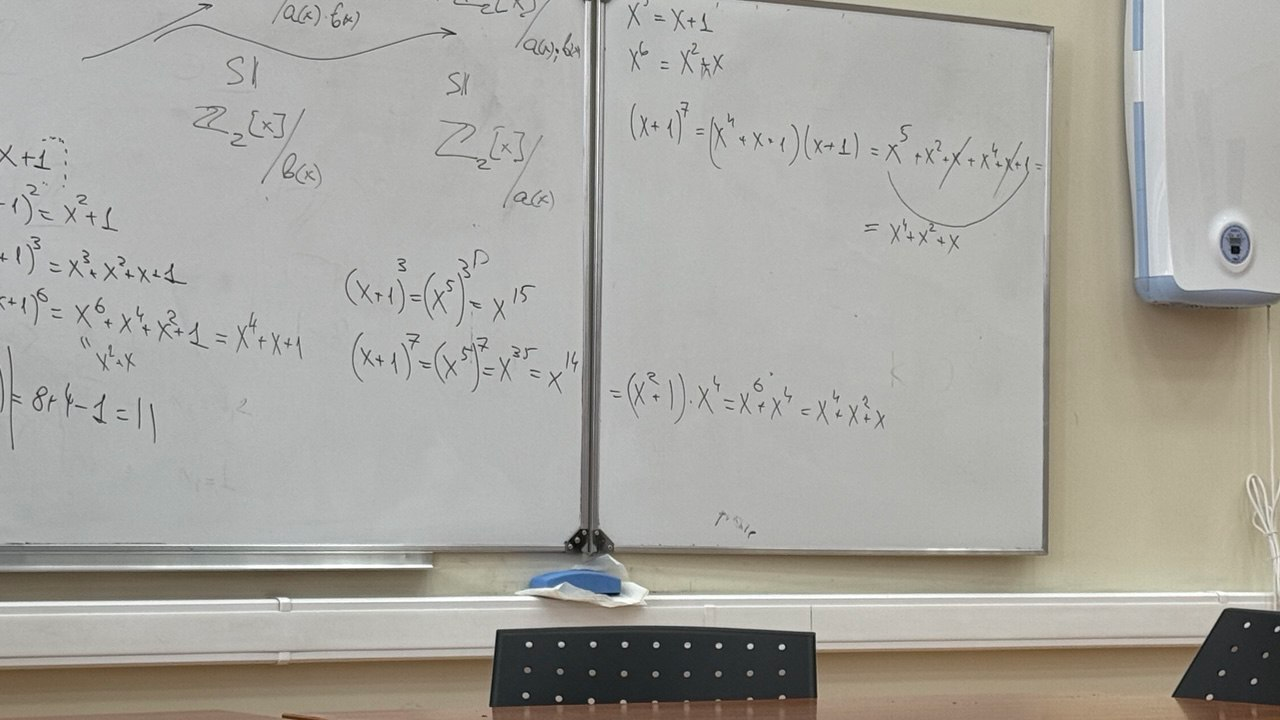 /a(x)·b(x)
ℤ₂[x]/
a(x)·b(x)
S\
ℤ₂[x]/
b(x)
S\
ℤ₂[x]/
a(x)
x+1
-1)² = x²+1
+1)³ = x³+x²+x+1
x+1)⁶ = x⁶+x⁴+x²+1 = x⁴+x+1
" x²+x
)| = 8+4-1 = 11
(x+1)³ = (x⁵)³ = x¹⁵
(x+1)⁷ = (x⁵)⁷ = x³⁵ = x¹⁴ = (x²+1)·x⁴ = x⁶+x⁴ = x⁴+x²+x
x⁵ = x+1
x⁶ = x²+x
(x+1)⁷ = (x⁴+x+1)(x+1) = x⁵+x²+x+x⁴+x+1 =
= x⁴+x²+x